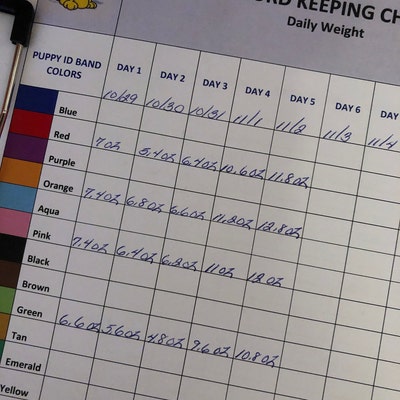 ORD KEEPING CH
Daily Weight
PUPPY ID BAND COLORS DAY 1 DAY 2 DAY 3 DAY 4 DAY 5 DAY 6 DAY
Blue 10/29 10/30 10/31 11/1 11/2 11/3 11/4
Red 7oz 5.4oz 6.4oz 10.6oz 11.8oz
Purple
Orange 7.4oz 6.8oz 6.6oz 11.20z 12.8oz
Aqua
Pink 7.4oz 6.4oz 6.2oz 11oz 12oz
Black
Brown
Green 6.6oz 5.6oz 4.8oz 9.6oz 10.8oz
Tan
Emerald
Yellow